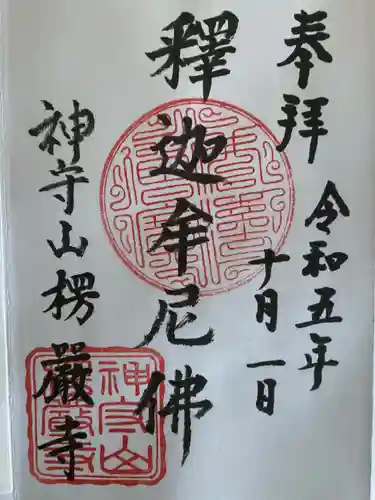 奉拝
令和五年
十月一日
釋迦牟尼佛
神守山楞嚴寺
神守山
楞嚴寺